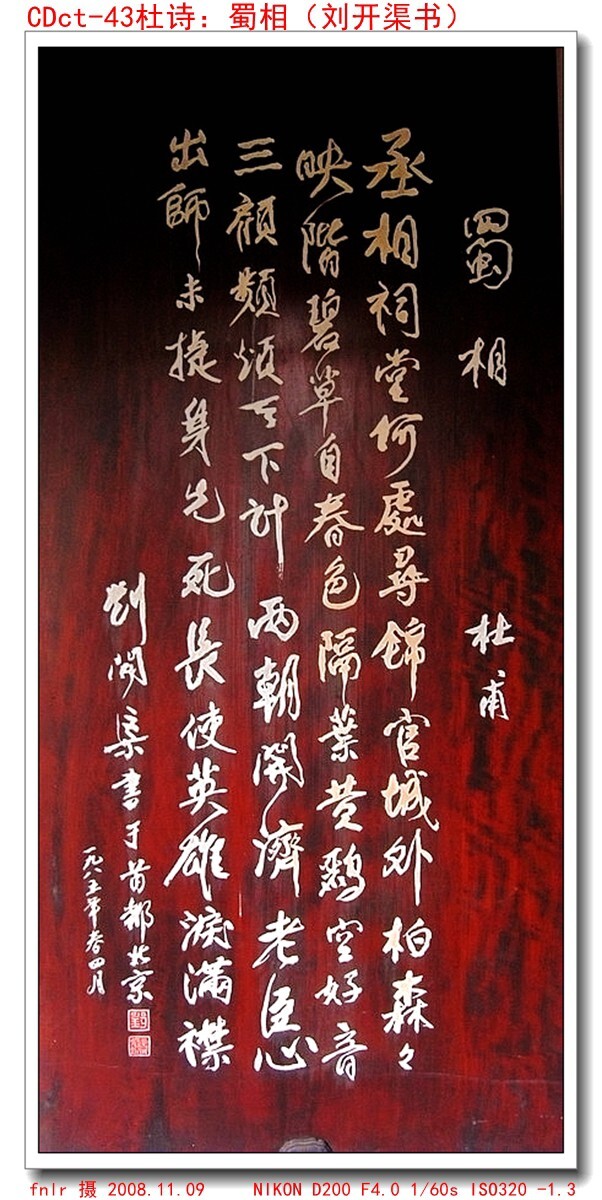 CDct-43杜诗：蜀相（刘开渠书）
蜀相 杜甫
丞相祠堂何處尋錦官城外柏森々
映階碧草自春色隔葉黄鸝空好音
三顧頻煩天下計兩朝開濟老臣心
出師未捷身先死長使英雄淚滿襟
劉開渠書于首都北京
一九八五年春四月
fnlr 摄 2008.11.09 NIKON D200 F4.0 1/60s ISO320 -1.3